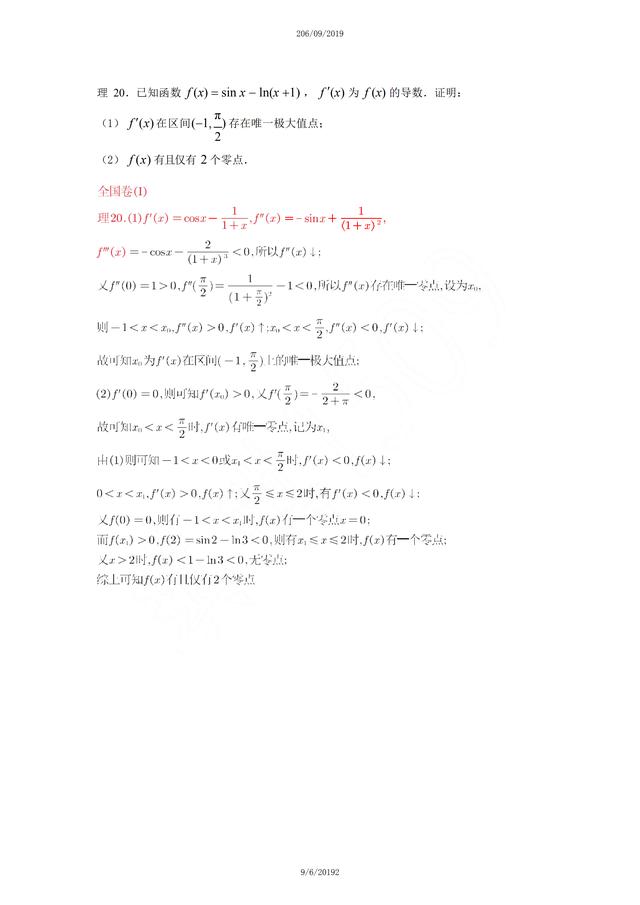 206/09/2019
理 20. 已知函数 f(x) = sin x − ln(x +1) , f′(x) 为 f(x) 的导数. 证明:
(1) f′(x) 在区间(−1, π/2) 存在唯一极大值点;
(2) f(x) 有且仅有 2 个零点.
全国卷(1)
理20.(1)f′(x) = cosx − 1/(1+x), f″(x) = − sinx + 1/(1+x)²,
f‴(x) = − cosx − 2/(1+x)³ < 0,所以f″(x)↓;
又f″(0) = 1 > 0,f″(π/2) = 1/(1+π/2)² − 1 < 0,所以f″(x)存在唯一零点,设为x₀,
则 − 1 < x < x₀,f″(x) > 0,f′(x)↑;x₀ < x < π/2,f″(x) < 0,f′(x)↓;
故可知x₀为f′(x)在区间(−1, π/2)上的唯一极大值点;
(2)f′(0) = 0,则可知f′(x₀) > 0,又f′(π/2) = − 2/(2+π) < 0,
故可知x₀ < x < π/2时,f′(x)有唯一零点,记为x₁,
由(1)则可知 − 1 < x < 0或x₁ < x < π/2时,f′(x) < 0,f(x)↓;
0 < x < x₁,f′(x) > 0,f(x)↑;又π/2 ≤ x ≤ 2时,有f′(x) < 0,f(x)↓;
又f(0) = 0,则有 − 1 < x < x₁时,f(x)有一个零点x = 0;
而f(x₁) > 0,f(2) = sin2 − ln3 < 0,则有x₁ ≤ x ≤ 2时,f(x)有一个零点;
又x > 2时,f(x) < 1 − ln3 < 0,无零点;
综上可知f(x)有且仅有2个零点
9/6/20192